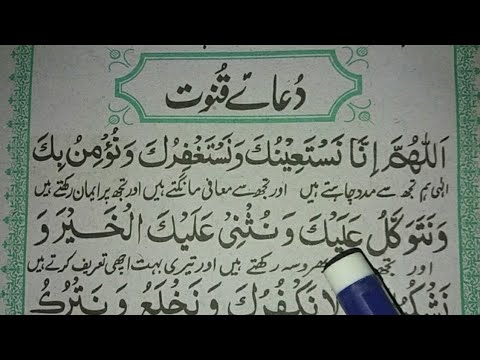 دُعائے قُنوت
اَللّٰهُمَّ اِنَّا نَسْتَعِيْنُكَ وَنَسْتَغْفِرُكَ وَنُؤْمِنُ بِكَ
الہٰی ہم تجھ سے مدد چاہتے ہیں اور تجھ سے معافی مانگتے ہیں اور تجھ پر ایمان رکھتے ہیں
وَنَتَوَكَّلُ عَلَيْكَ وَنُثْنِىْ عَلَيْكَ الْخَيْرَ وَ
اور تجھ بھروسہ رکھتے ہیں اور تیری بہت اچھی تعریف کرتے ہیں
نَشْكُ لَا نَكْفُرُكَ وَنَخْلَعُ وَنَتْرُكُ